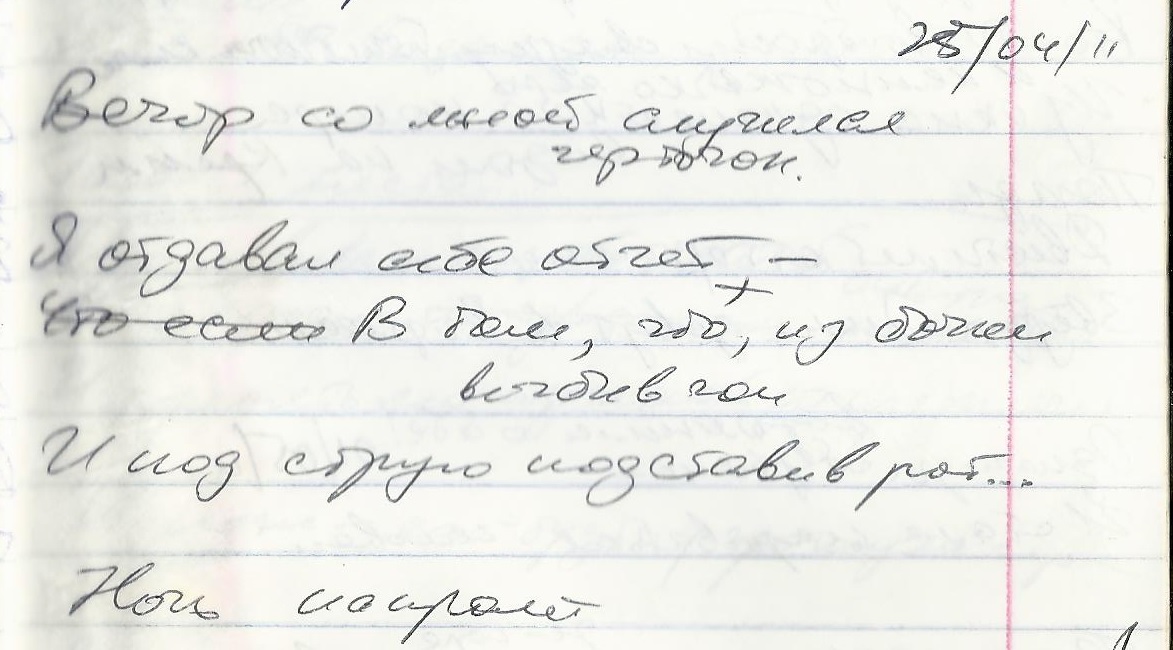 25/04/11
Вечор со мной случился
чертогон.
Я отдавал себе отчет, –
Что если В том, что, из бочки
вытбив гон
И под струю подставив рот...
Ночь напролёт